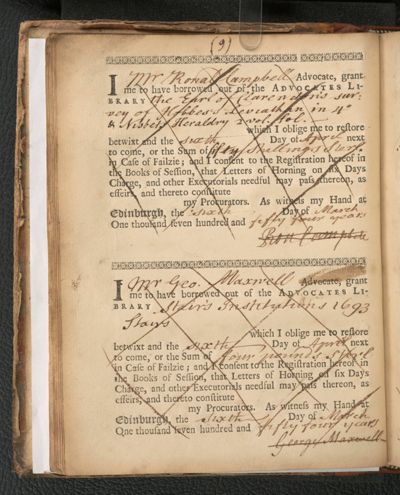 (9)
I Mr Ronald Campbell Advocate, grant
me to have borrowed out of the ADVOCATES LI-
BRARY the Earl of Clarendons sur-
vey of Hobbess Leviathan in 4o
& Nisbets Heraldry 2 vol. fol.
which I oblige me to restore
betwixt and the sixth Day of next
to come, or the Sum of Shillings Sterl.
in Case of Failzie; and I consent to the Registration hereof in
the Books of Session, that Letters of Horning on six Days
Charge, and other Executorials needful may pass thereon, as
effeirs, and thereto constitute
my Procurators. As witness my Hand at
Edinburgh, the sixth Day of March
One thousand seven hundred and fifty four years
I Mr Geo. Maxwell Advocate, grant
me to have borrowed out of the ADVOCATES LI-
BRARY Stairs Institutions 1693
Stairs
which I oblige me to restore
betwixt and the sixth Day of April next
to come, or the Sum of four pounds Sterl
in Case of Failzie; and I consent to the Registration hereof in
the Books of Session, that Letters of Horning on six Days
Charge, and other Executorials needful may pass thereon, as
effeirs, and thereto constitute
my Procurators. As witness my Hand at
Edinburgh, the sixth Day of March
One thousand seven hundred and fifty four years
George Maxwell